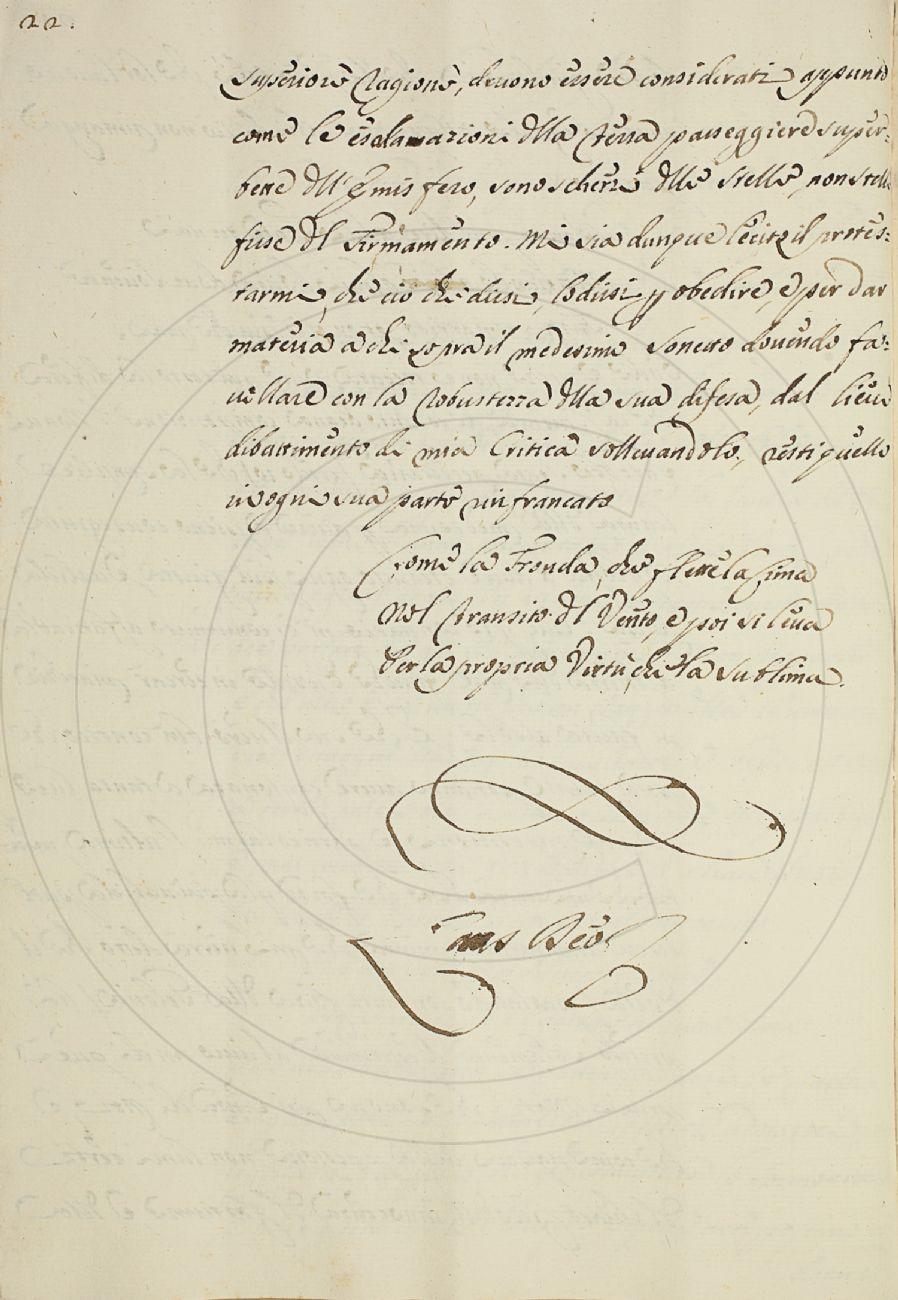 22.
superiore Ragione, devono essere considerati appunto
come le esalazioni della Terra passeggiere super:
bette dell'Emisfero, sono scherzi delle Stelle, non stelle
fisse del Firmamento. Mi sia dunque lecito il protes:
tarmi, che ciò che dissi, lo dissi p obedire, e per dar
materia a chi sopra il medesimo Sonetto dovendo fa:
vellare con la Robustezza della sua difesa, dal lieve
dibattimento di mia Critica sollevandolo, resti quello
in ogni sua parte rinfrancato
Come la Fronda, che flette la Cima
Nel transito del Vento, e poi si leva
Per la propria Virtù, che la sublima.
Laus Deo